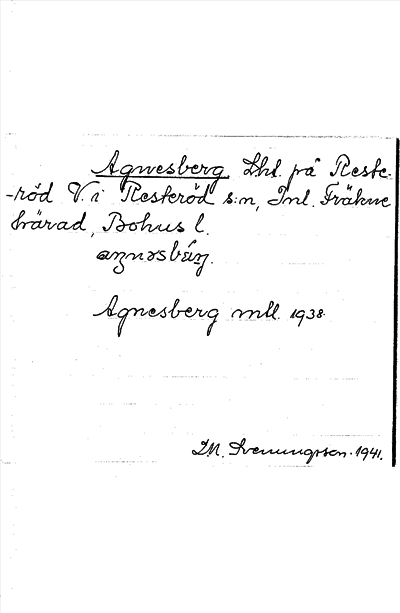 Agnesberg, Lht. på Reste-
-röd V. i Resteröd s:n, Inl. Fräkne
härad, Bohus l.

Agnesberg mtl. 1938.
M. Sveningsson. 1941.